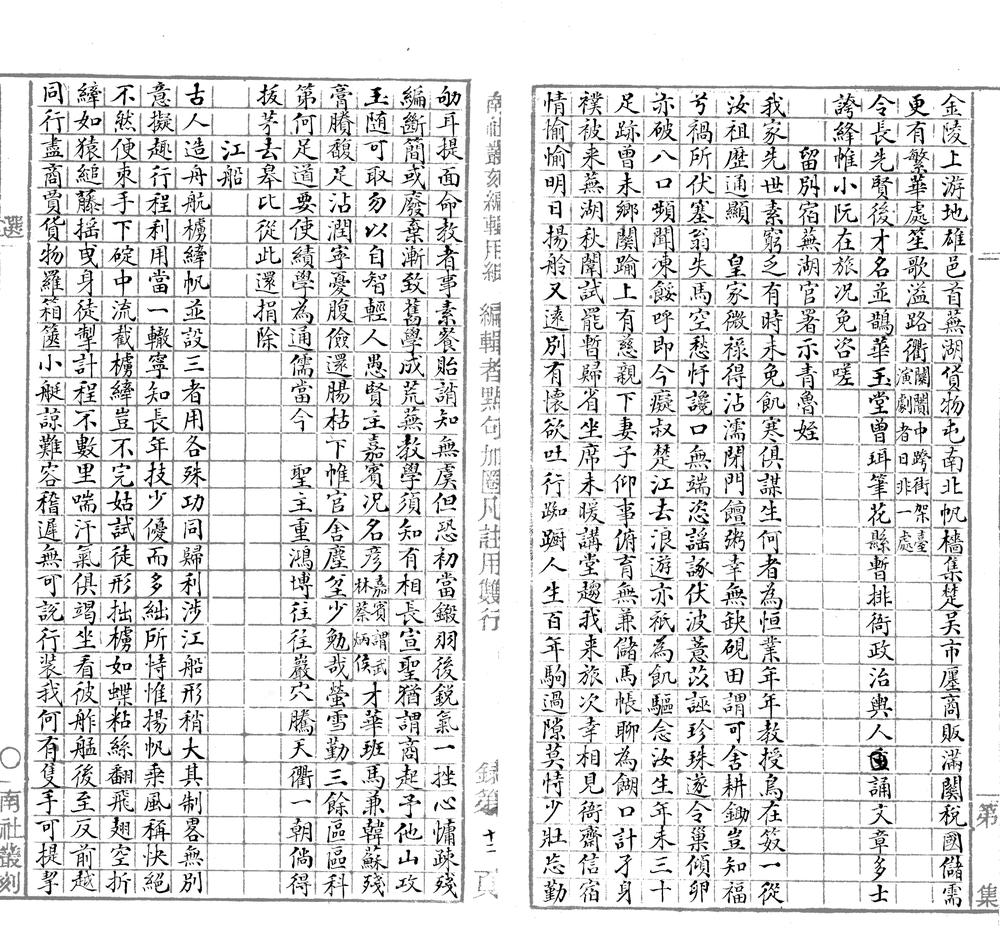 金陵上游地雄邑首蕪湖貨物屯南北帆檣集楚吳市廛商販滿關稅國儲需
更有繁華處笙歌溢路衢闤闠中跨街架臺演劇者日非一處
令長先賢後才名並鵲華玉堂曾珥筆花縣暫排衙政治輿人誦文章多士
誇絳帷小阮在旅况免咨嗟
留別宿蕪湖官署示青魯姪
我家先世素窮乏有時未免飢寒俱謀生何者為恒業年年教授鳥在笯一從
汝祖歷通顯 皇家微祿得沾濡閉門饘粥幸無缺硯田謂可舍耕鋤豈知福
兮禍所伏塞翁失馬空愁忬讒口無端恣謠諑伏波薏苡誣珍珠遂令巢傾卵
亦破八口頻聞凍餒呼即今癡叔楚江去浪遊亦衹為飢驅念汝生年未三十
足跡曾未鄉關踰上有慈親下妻子仰事俯育無兼儲馬帳聊為餬口計孑身
襆被来蕪湖秋闈試罷暫歸省坐席未暖講堂趨我来旅次幸相見衙齋信宿
情愉愉明日揚舲又遠別有懷欲吐行踟蹰人生百年駒過隙莫恃少壯忘勤
南社叢刻編輯用紙 編輯者點句加圈凡註用雙行 錄第十二頁
劬耳提面命教者事素餐貽誚知無虞但恐初當鎩羽後銳氣一挫心慵疎殘
編斷簡或廢棄漸致舊學成荒蕪教學須知有相長宣聖猶謂商起予他山攻
玉随可取勿以自智輕人愚賢主嘉賓况名彥嘉賓謂武林蔡炳侯才華班馬兼韓蘇殘
膏賸馥足沾潤寧憂腹儉還腸枯下帷官舍塵坌少勉哉螢雪勤三餘區區科
第何足道要使績學為通儒當今 聖主重鴻博往往巖穴騰天衢一朝倘得
拔茅去皋比從此還捐除
江船
古人造舟航櫓縴帆並設三者用各殊功同歸利涉江船形稍大其制畧無別
意擬趣行程利用當一轍寧知長年技少優而多絀所恃惟揚帆乘風稱快絕
不然便束手下碇中流截櫓縴豈不完姑試徒形拙櫓如蝶粘絲翻飛翅空折
縴如猿縋藤搖曳身徒掣計程不數里喘汗氣俱竭坐看彼舴艋後至反前越
同行盡商賈貨物羅箱篋小艇諒難容稽遲無可説行装我何有隻手可提挈
選 ○南社叢刻
第 集